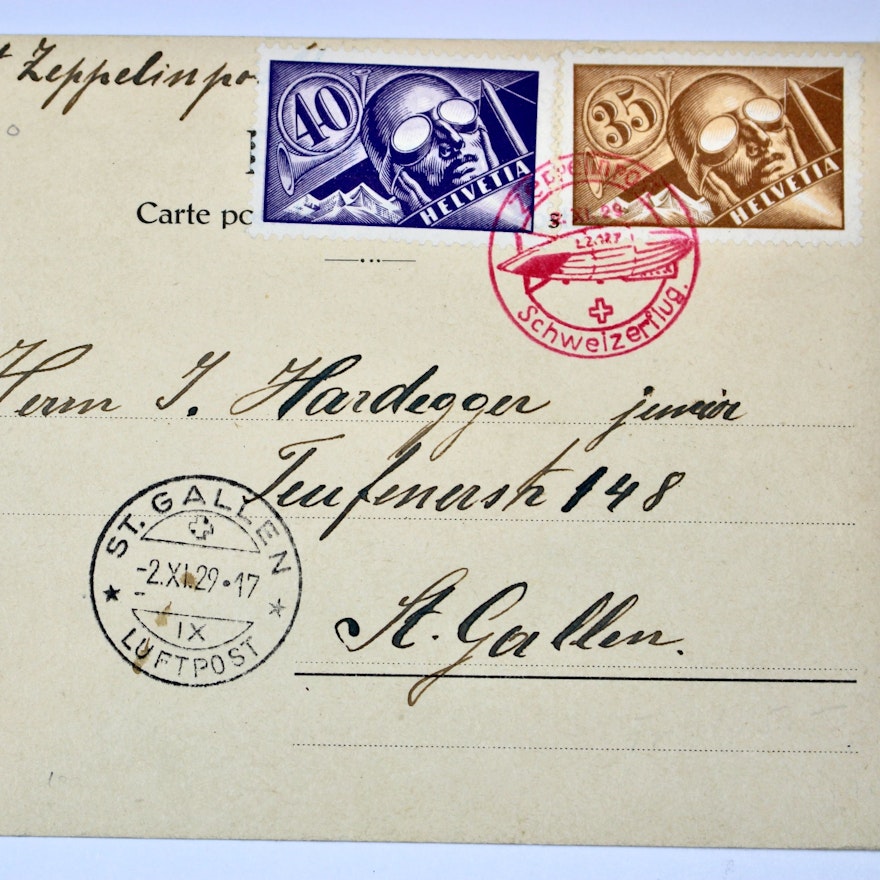 Zeppelinpo
40
HELVETIA
35
HELVETIA
Carte po
Schweizerflug.
Herrn J. Hardegger junior
Teufenerstr 148
St. Gallen.
ST. GALLEN
-2.XI.29•17
IX
LUFTPOST